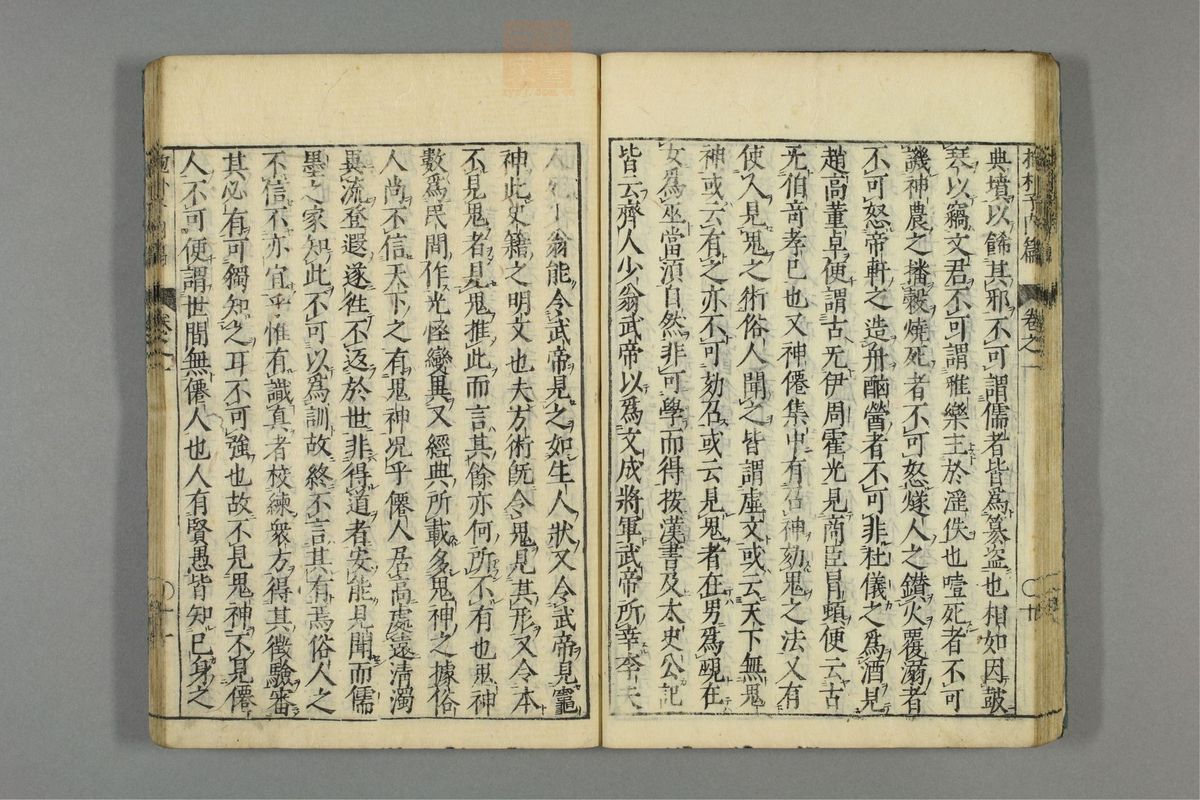 抱朴子內篇 卷之一 〇十
典墳以餙其邪不可謂儒者皆爲篡盗也相如因皷
琴以竊文君不可謂雅樂主於滛佚也噎死者不可
譏神農之播穀燒死者不可怒燧人之鑚火覆溺者
不可怒帝軒之造舟酗醟者不可非杜儀之爲酒見
趙高董卓便謂古无伊周霍光見商臣冒頓便云古
无伯竒孝已也又神僊集中有召神劾鬼之法又有
使人見鬼之術俗人聞之皆謂虛文或云天下無鬼
神或云有之亦不可劾召或云見鬼者在男爲覡在
女爲巫當湏自然非可學而得按漢書及太史公記
皆云齊人少翁武帝以爲文成將軍武帝所幸李夫
人死少翁能令武帝見之如生人狀又令武帝見竈
神此史籍之明文也夫方術旣令鬼見其形又令本
不見鬼者見鬼推此而言其餘亦何所不有也鬼神
數爲民間作光怪變異又經典所載多鬼神之據俗
人尚不信天下之有鬼神况乎僊人居高處遠清濁
異流登遐遂徃不返於世非得道者安能見聞而儒
墨之家知此不可以爲訓故終不言其有焉俗人之
不信不亦宜乎惟有識真者校練衆方得其徵驗審
其必有可獨知之耳不可強也故不見鬼神不見僊
人不可便謂世間無僊人也人有賢愚皆知已身之
抱朴子內篇 卷之一 〇十一